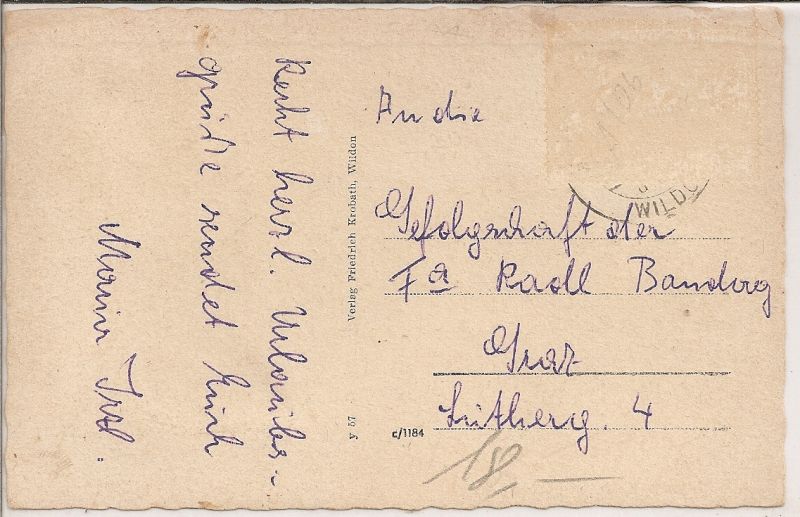 Recht herzl. Urlaubs-
grüße sendet Euch
Maria
Verlag Friedrich Krobath, Wildon
y 57
c/1184
An die
Gefolgschaft der
Fa Radl Bandag.
Graz
4
WILDO
18